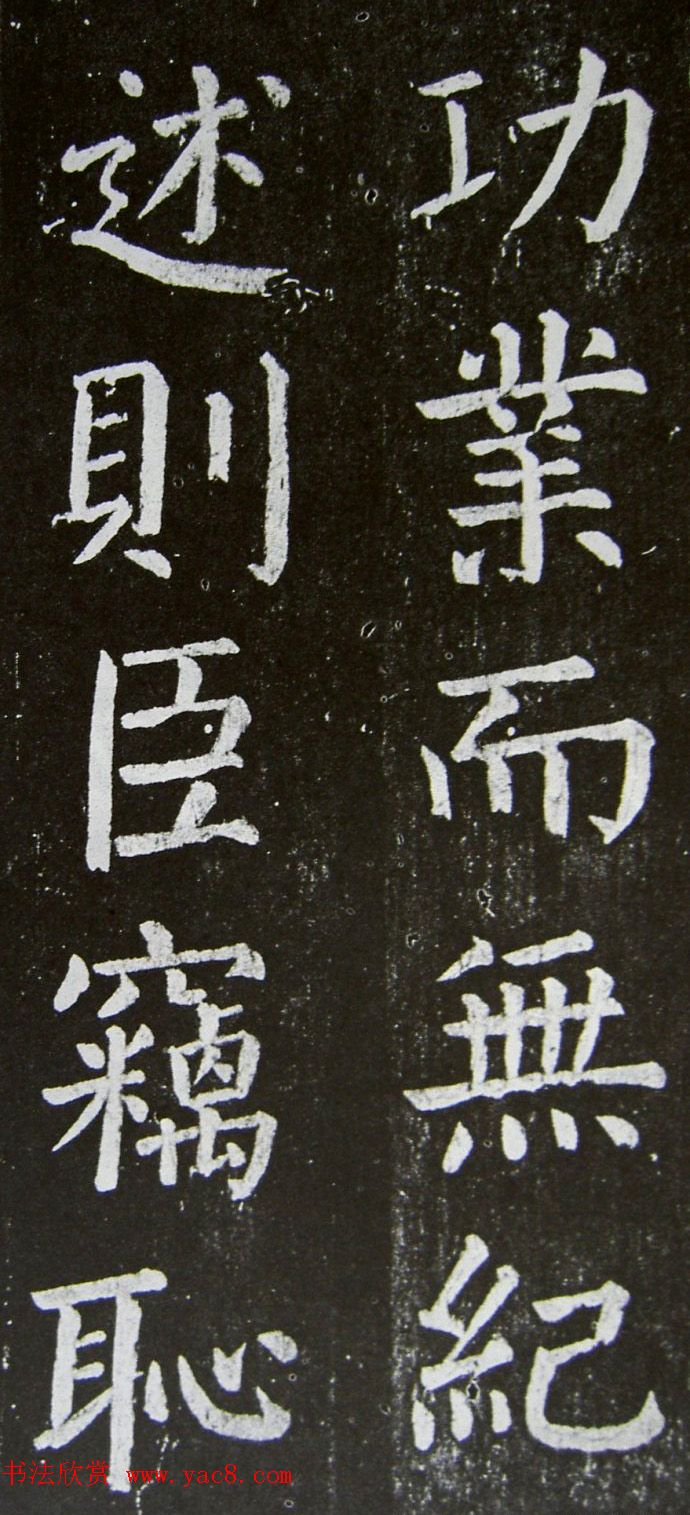 功業而無紀
述則臣竊恥
书法欣赏 www.yac8.com